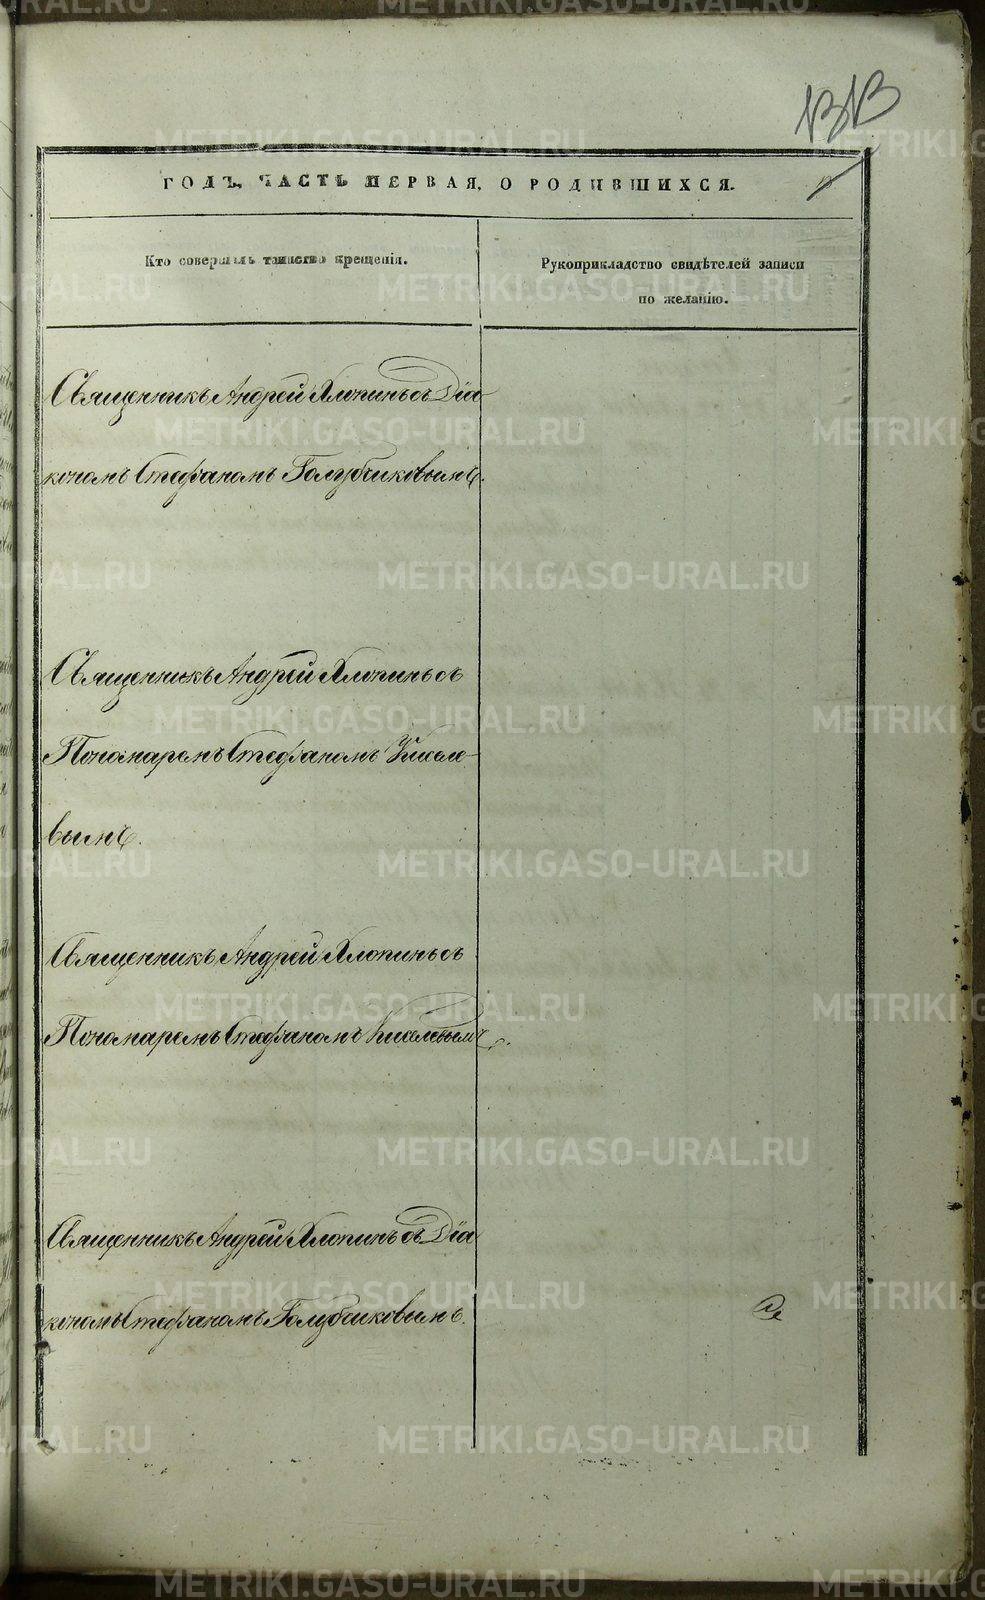 ГОДЪ, ЧАСТЬ ПЕРВАЯ, О РОДИВШИХСЯ.
Кто совершалъ таинство крещенія.
Рукоприкладство свидѣтелей записи
по желанію.
Священникъ Андрей Хлопинъ съ Діа
кономъ Стефаномъ Голубчиковымъ.
Священникъ Андрей Хлопинъ съ
Пономаремъ Стефаномъ Киселе-
вымъ.
Священникъ Андрей Хлопинъ съ
Пономаремъ Стефаномъ Киселевымъ.
Священникъ Андрей Хлопинъ съ Діа
кономъ Стефаномъ Голубчиковымъ.
METRIKI.GASO-URAL.RU